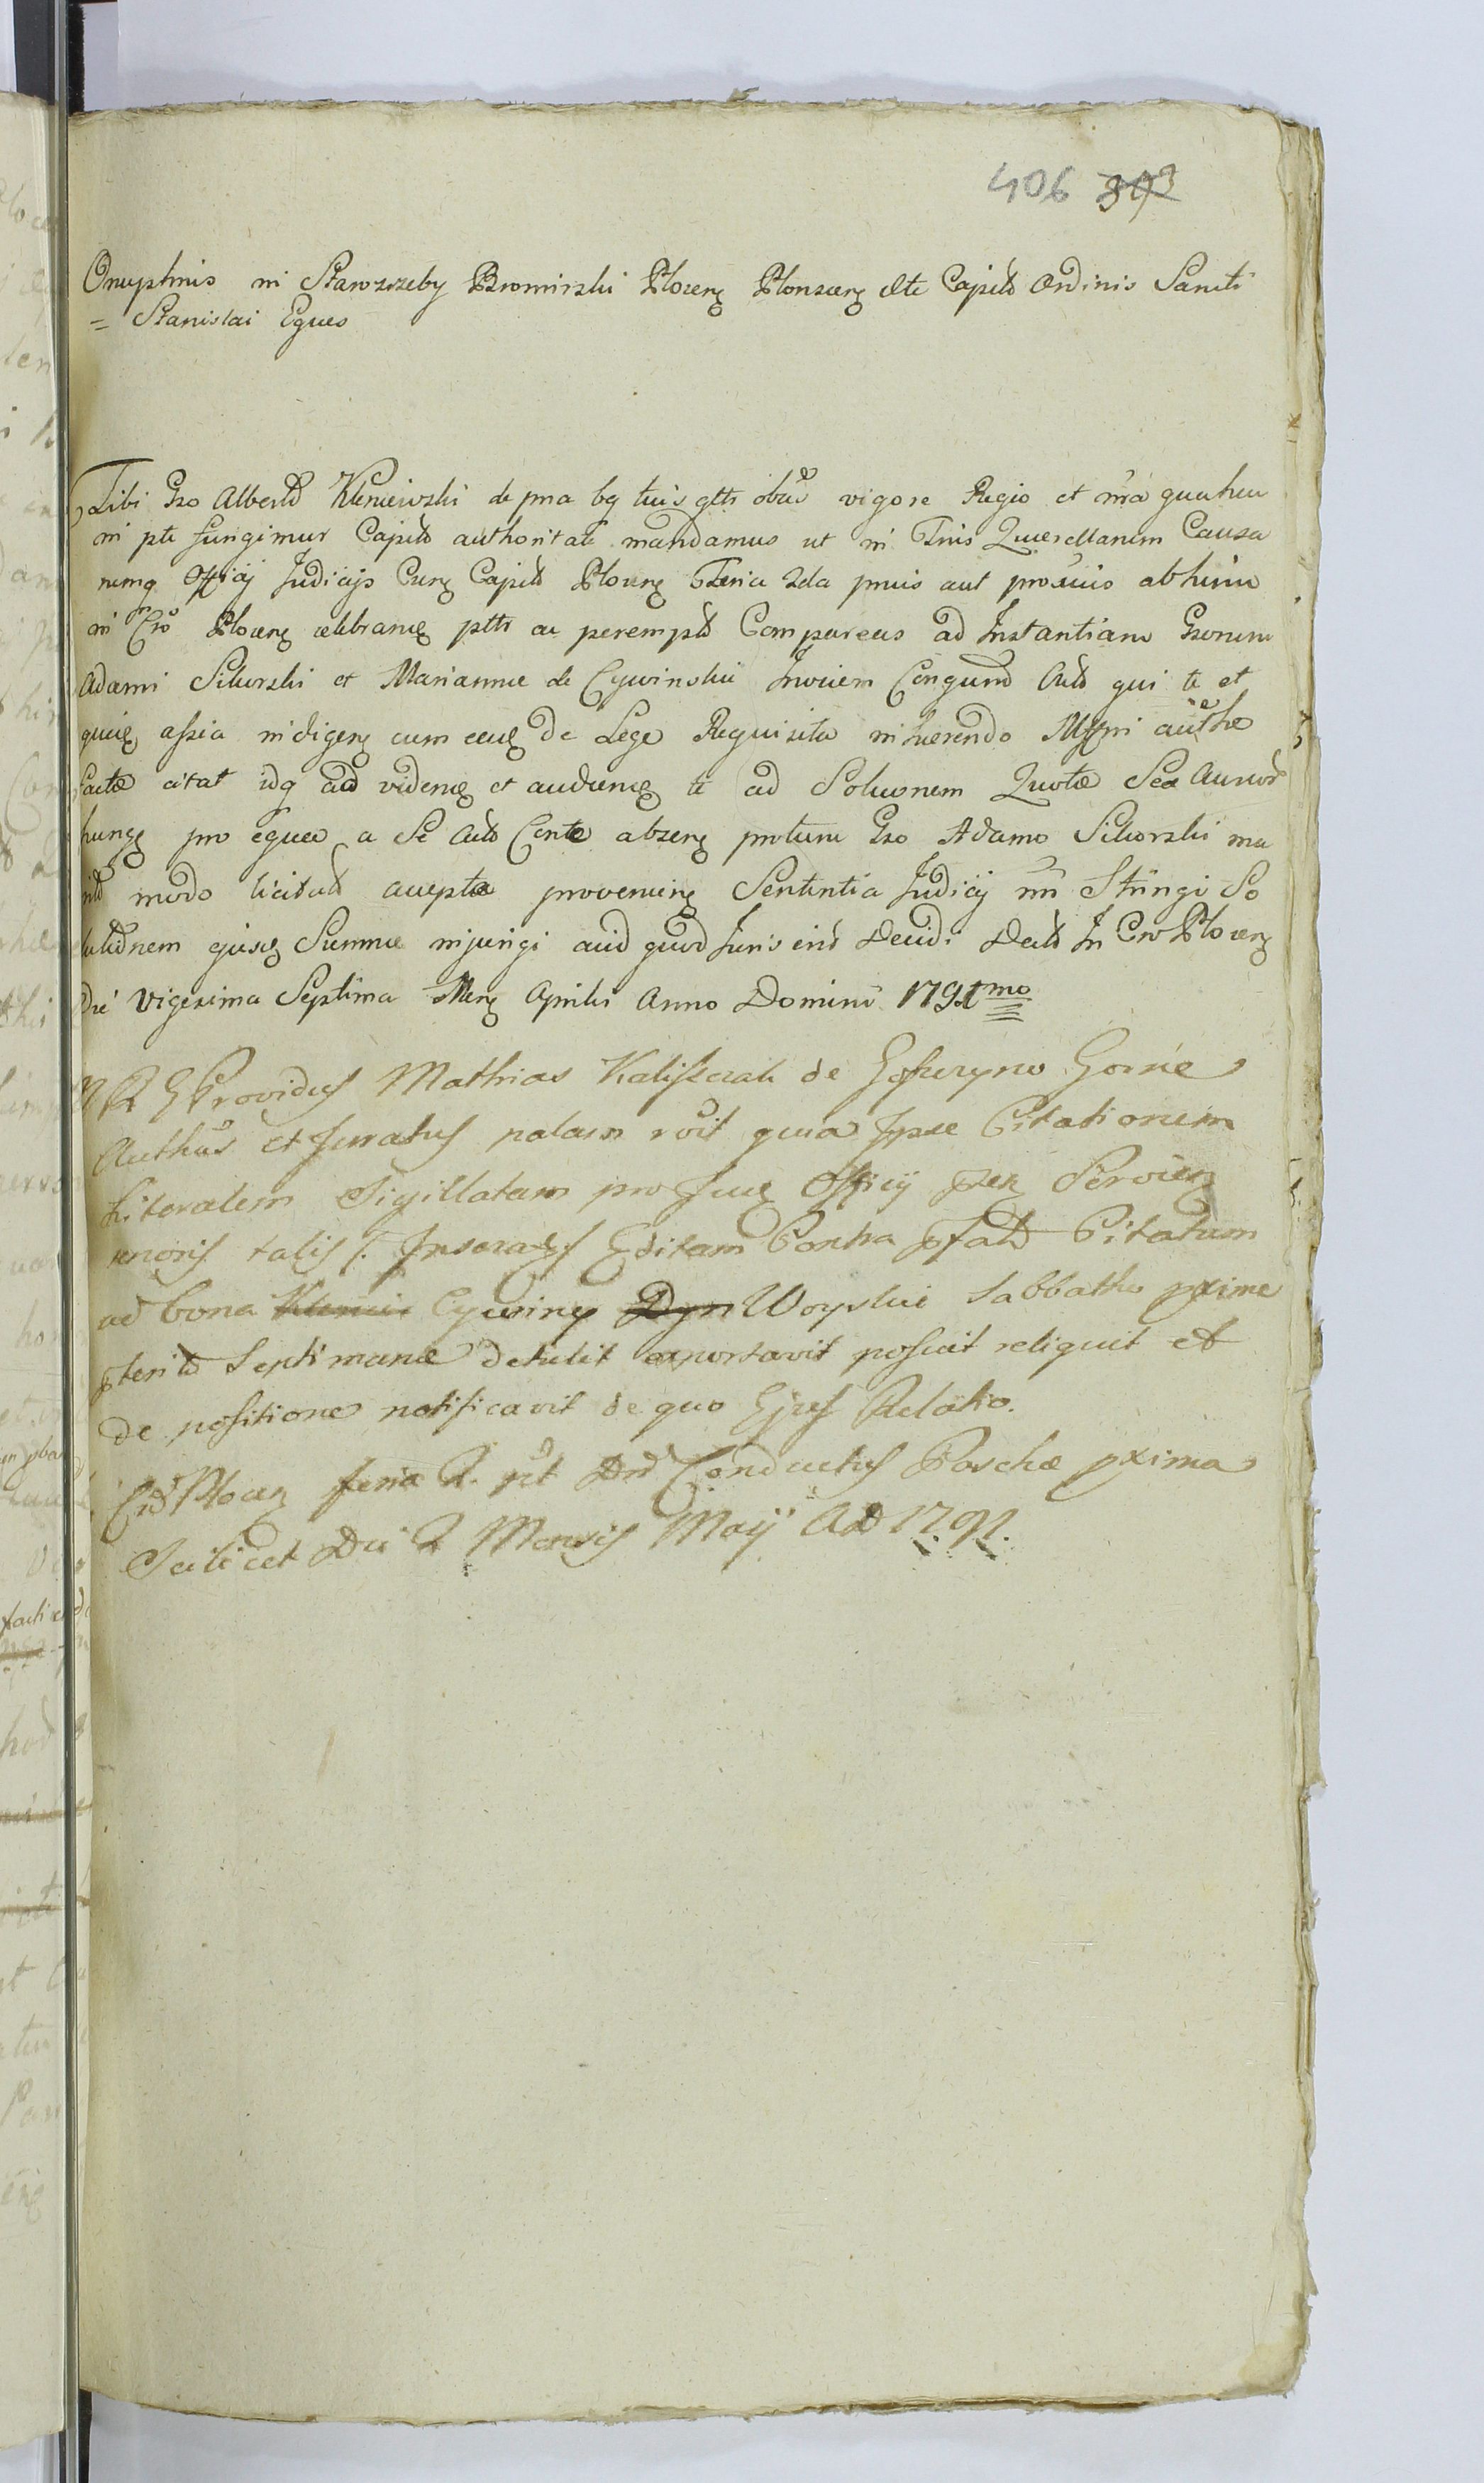 406 393
Onuphrius in Starorzeby Bromirski Plocen Plonscen Ett Capits Ordinis Sancti
= Stanislai Eques
Tibi Gso Alberto Kleniewski de pna bq tuis gltr obus vigore Regio et nra qua heu
in pte fungimur Capits authoritate mandamus ut in Tnis Querellarum Causa
rumq Officij Judicijs Curq Capits Plocen Feria 2da pmis aut proximis abhinc
in Cro Plocen celebranq pltr ac perempto Compareas ad Instantiam Gsorum
Adami Sikorski et Mariannæ de Cywinskie Invicem Congum Auto qui te et
assia indigenq cum de Lege Requisita inhærendo auttæ
factæ citat idq ad videnq et audienq te ad Solucionem Quotæ Sex Auror
hung pro equo a Se Acto absenq Gso Adamo Sikorski ma
rito modo licitato acceptæ provenienq Sententia Judicij Stringi So
lutionem ejusq Summæ injungi aliud quod Juris erit Decidi Dat In Cro Plocen
Die Vigesima Septima Menq Aprilis Anno Domini 1791mo
Providus Mathias Kaliszczak de Goszczyno Gorne
Authus et Juratus palam rvit quia Ipse Citationem
Literalem Sigillatam pro Officij
talis Insera Editam Contra Citatum
ad bona Klenie Cywinq Dyn Woyskie Sabbatho pxime
Septimanæ detulit exportavit posuit reliquit et
de positione notificavit de quo Ejus Relatio.
Cro Plocen feria 2. pt Conductus Paschæ pxima
Scilicet Die 2 Mensis Maij AD 1791.